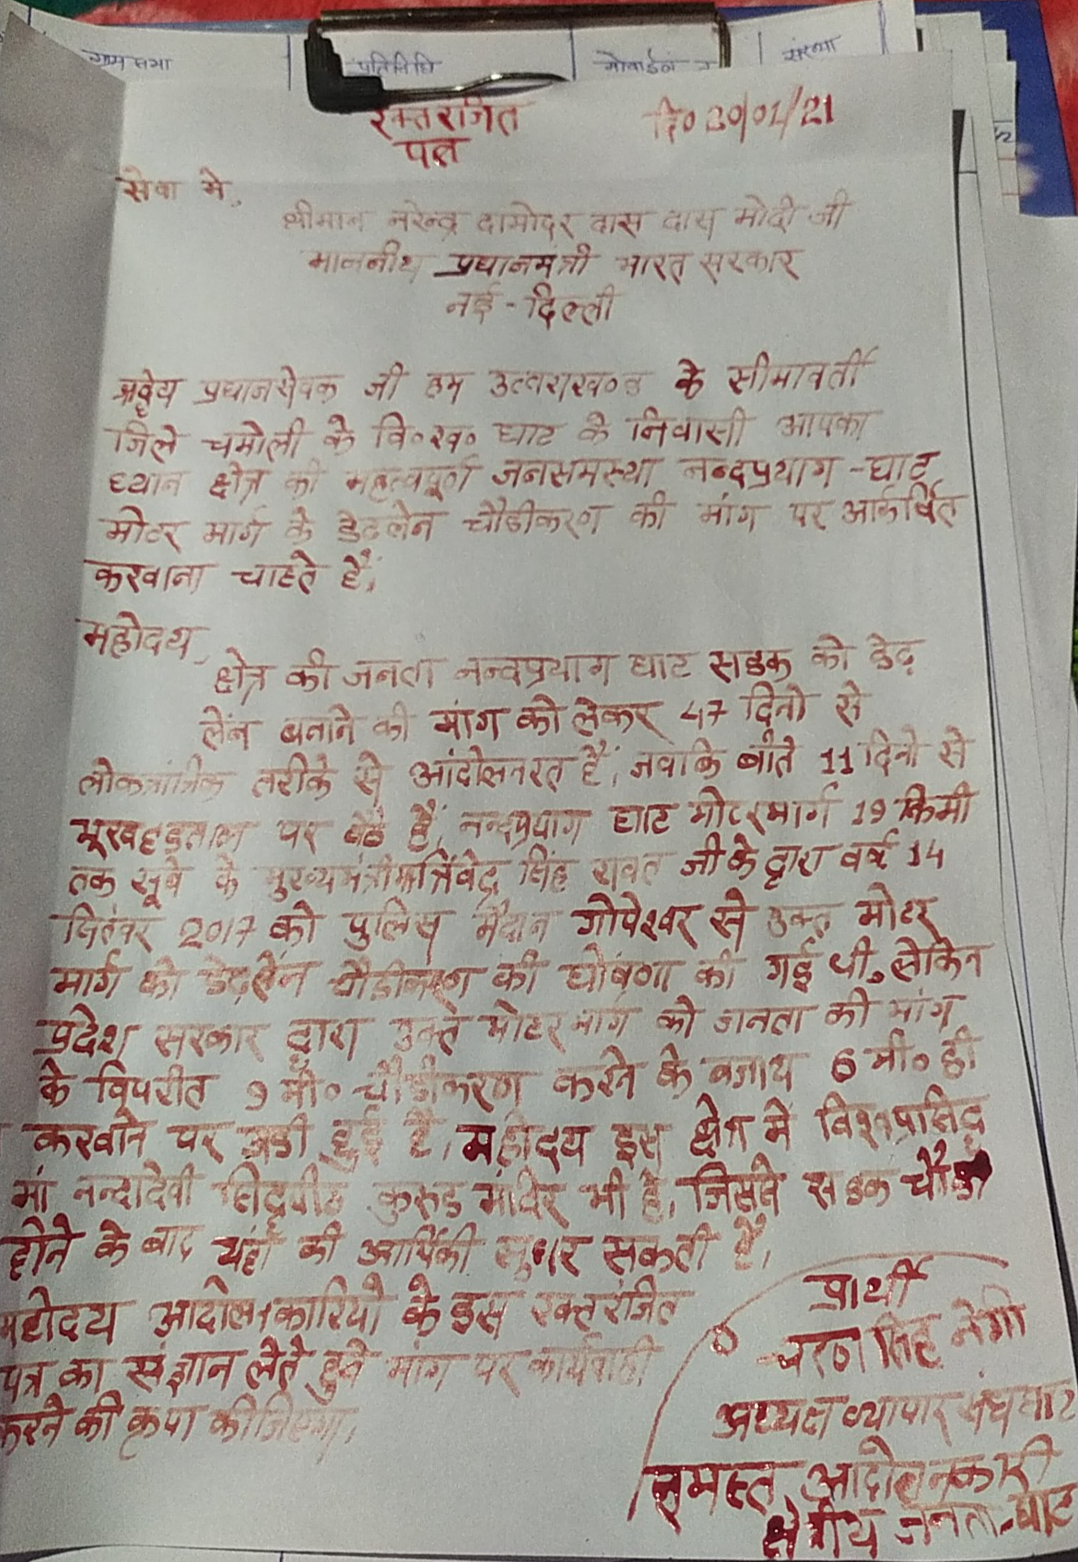 ग्राम सभा प्रतिनिधि मोबाईल न संख्या
रक्तरंजित
पत्र
दि० 20/01/21
सेवा मे,
श्रीमान नरेन्द्र दामोदर दास दास मोदी जी
माननीय प्रधानमंत्री भारत सरकार
नई - दिल्ली
श्रद्वेय प्रधानसेवक जी हम उत्तराखण्ड के सीमावर्ती
जिले चमोली के वि०ख० घाट के निवासी आपका
ध्यान क्षेत्र की महत्वपूर्ण जनसमस्या नन्दप्रयाग - घाट
मोटर मार्ग के डेढलेन चौडीकरण की मांग पर आकर्षित
करवाना चाहते हैं,
महोदय,
क्षेत्र की जनता नन्दप्रयाग घाट सडक को डेढ़
लेन बनाने की मांग को लेकर 47 दिनो से
लोकतांत्रिक तरीके से आंदोलनरत हैं, जबकि बीते 11 दिनो से
भूखहड़ताल पर बैठे हैं, नन्दप्रयाग घाट मोटरमार्ग 19 किमी
तक सूबे के मुख्यमंत्री त्रिवेंद्र सिंह रावत जी के द्वारा वर्ष 14
सितंबर 2017 को पुलिस मैदान गोपेश्वर से उक्त मोटर
मार्ग को डेढ़लेन चौडीकरण की घोषणा की गई थी, लेकिन
प्रदेश सरकार द्वारा उक्त मोटर मार्ग को जनता की मांग
के विपरीत 9 मी० चौडीकरण करने के बजाय 6 मी० ही
करवाने पर अडी हुई है, महोदय इस क्षेत्र में विश्वप्रसिद्व
मां नन्दादेवी सिद्वपीठ कुरुड मंदिर भी है, जिससे सडक चौडी
होने के बाद यहां की आर्थिकी सुधर सकती है,
महोदय आंदोलनकारियो के इस रक्त रंजित
पत्र का संज्ञान लेते हुवे मांग पर कार्यवाही
करने की कृपा कीजिएगा,
प्रार्थी
चरण सिंह नेगी
अध्यक्ष व्यापार संघ घाट
समस्त आंदोलनकारी
क्षेत्रीय जनता - घाट